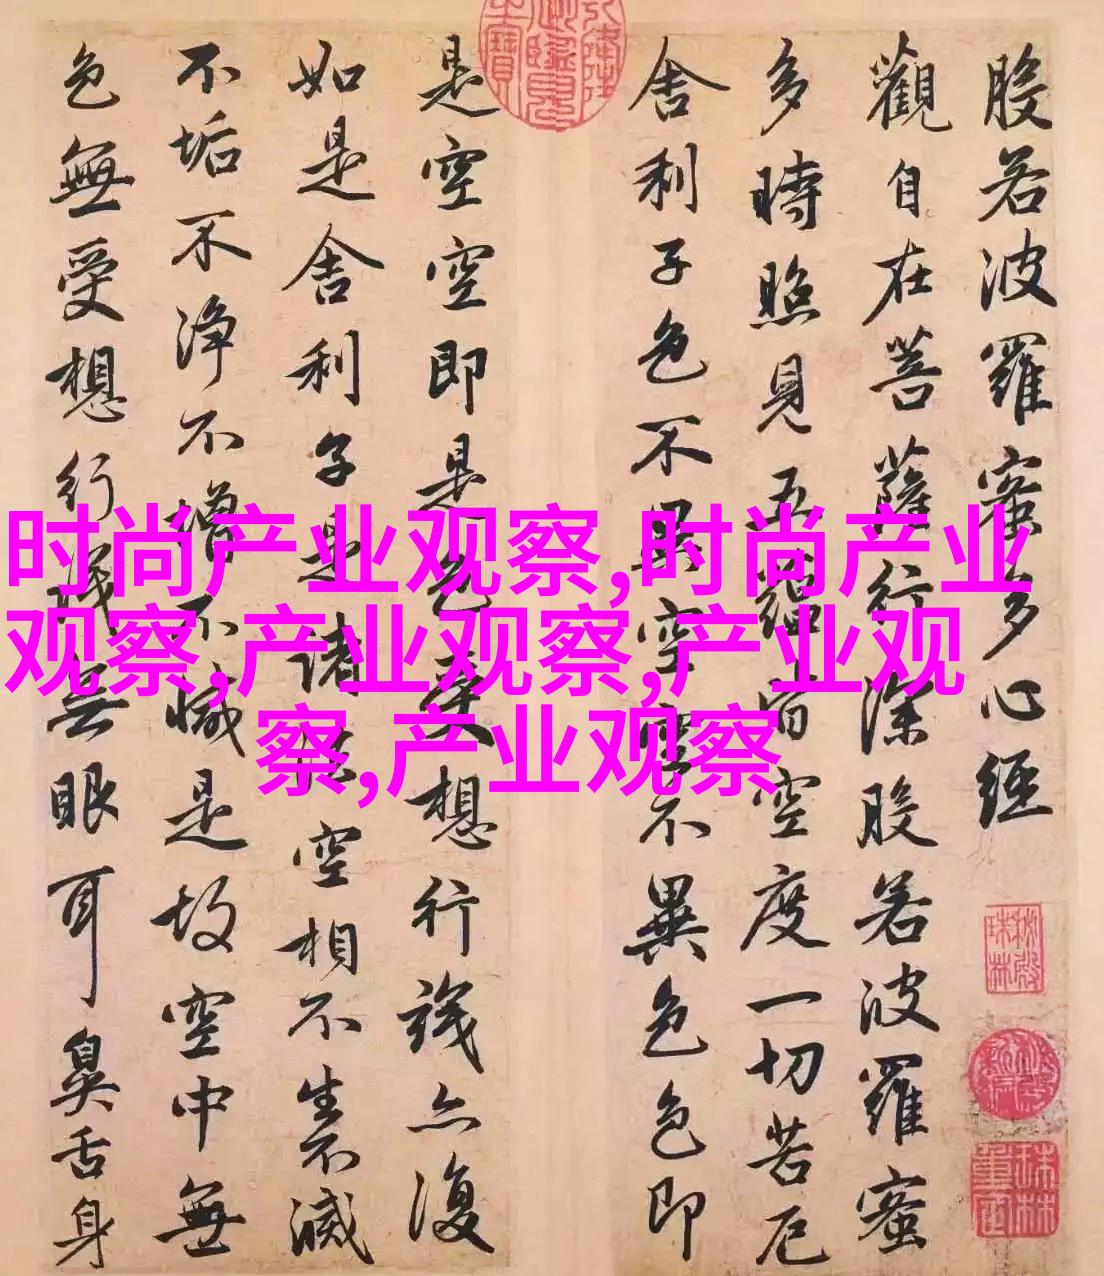 般若波羅蜜多心經
觀自在菩薩行深般若波羅蜜
多時照見五蘊皆空度一切苦厄
舍利子色不異空空不異色色即
是空空即是色受想行識亦復
如是舍利子是諸法空相不生不滅
不垢不净不增不減是故空中無
色無受想行識无眼耳鼻舌身
时尚产业观察,时尚产业
观察,产业观察,产业观
察,产业观察
秘殿珠林